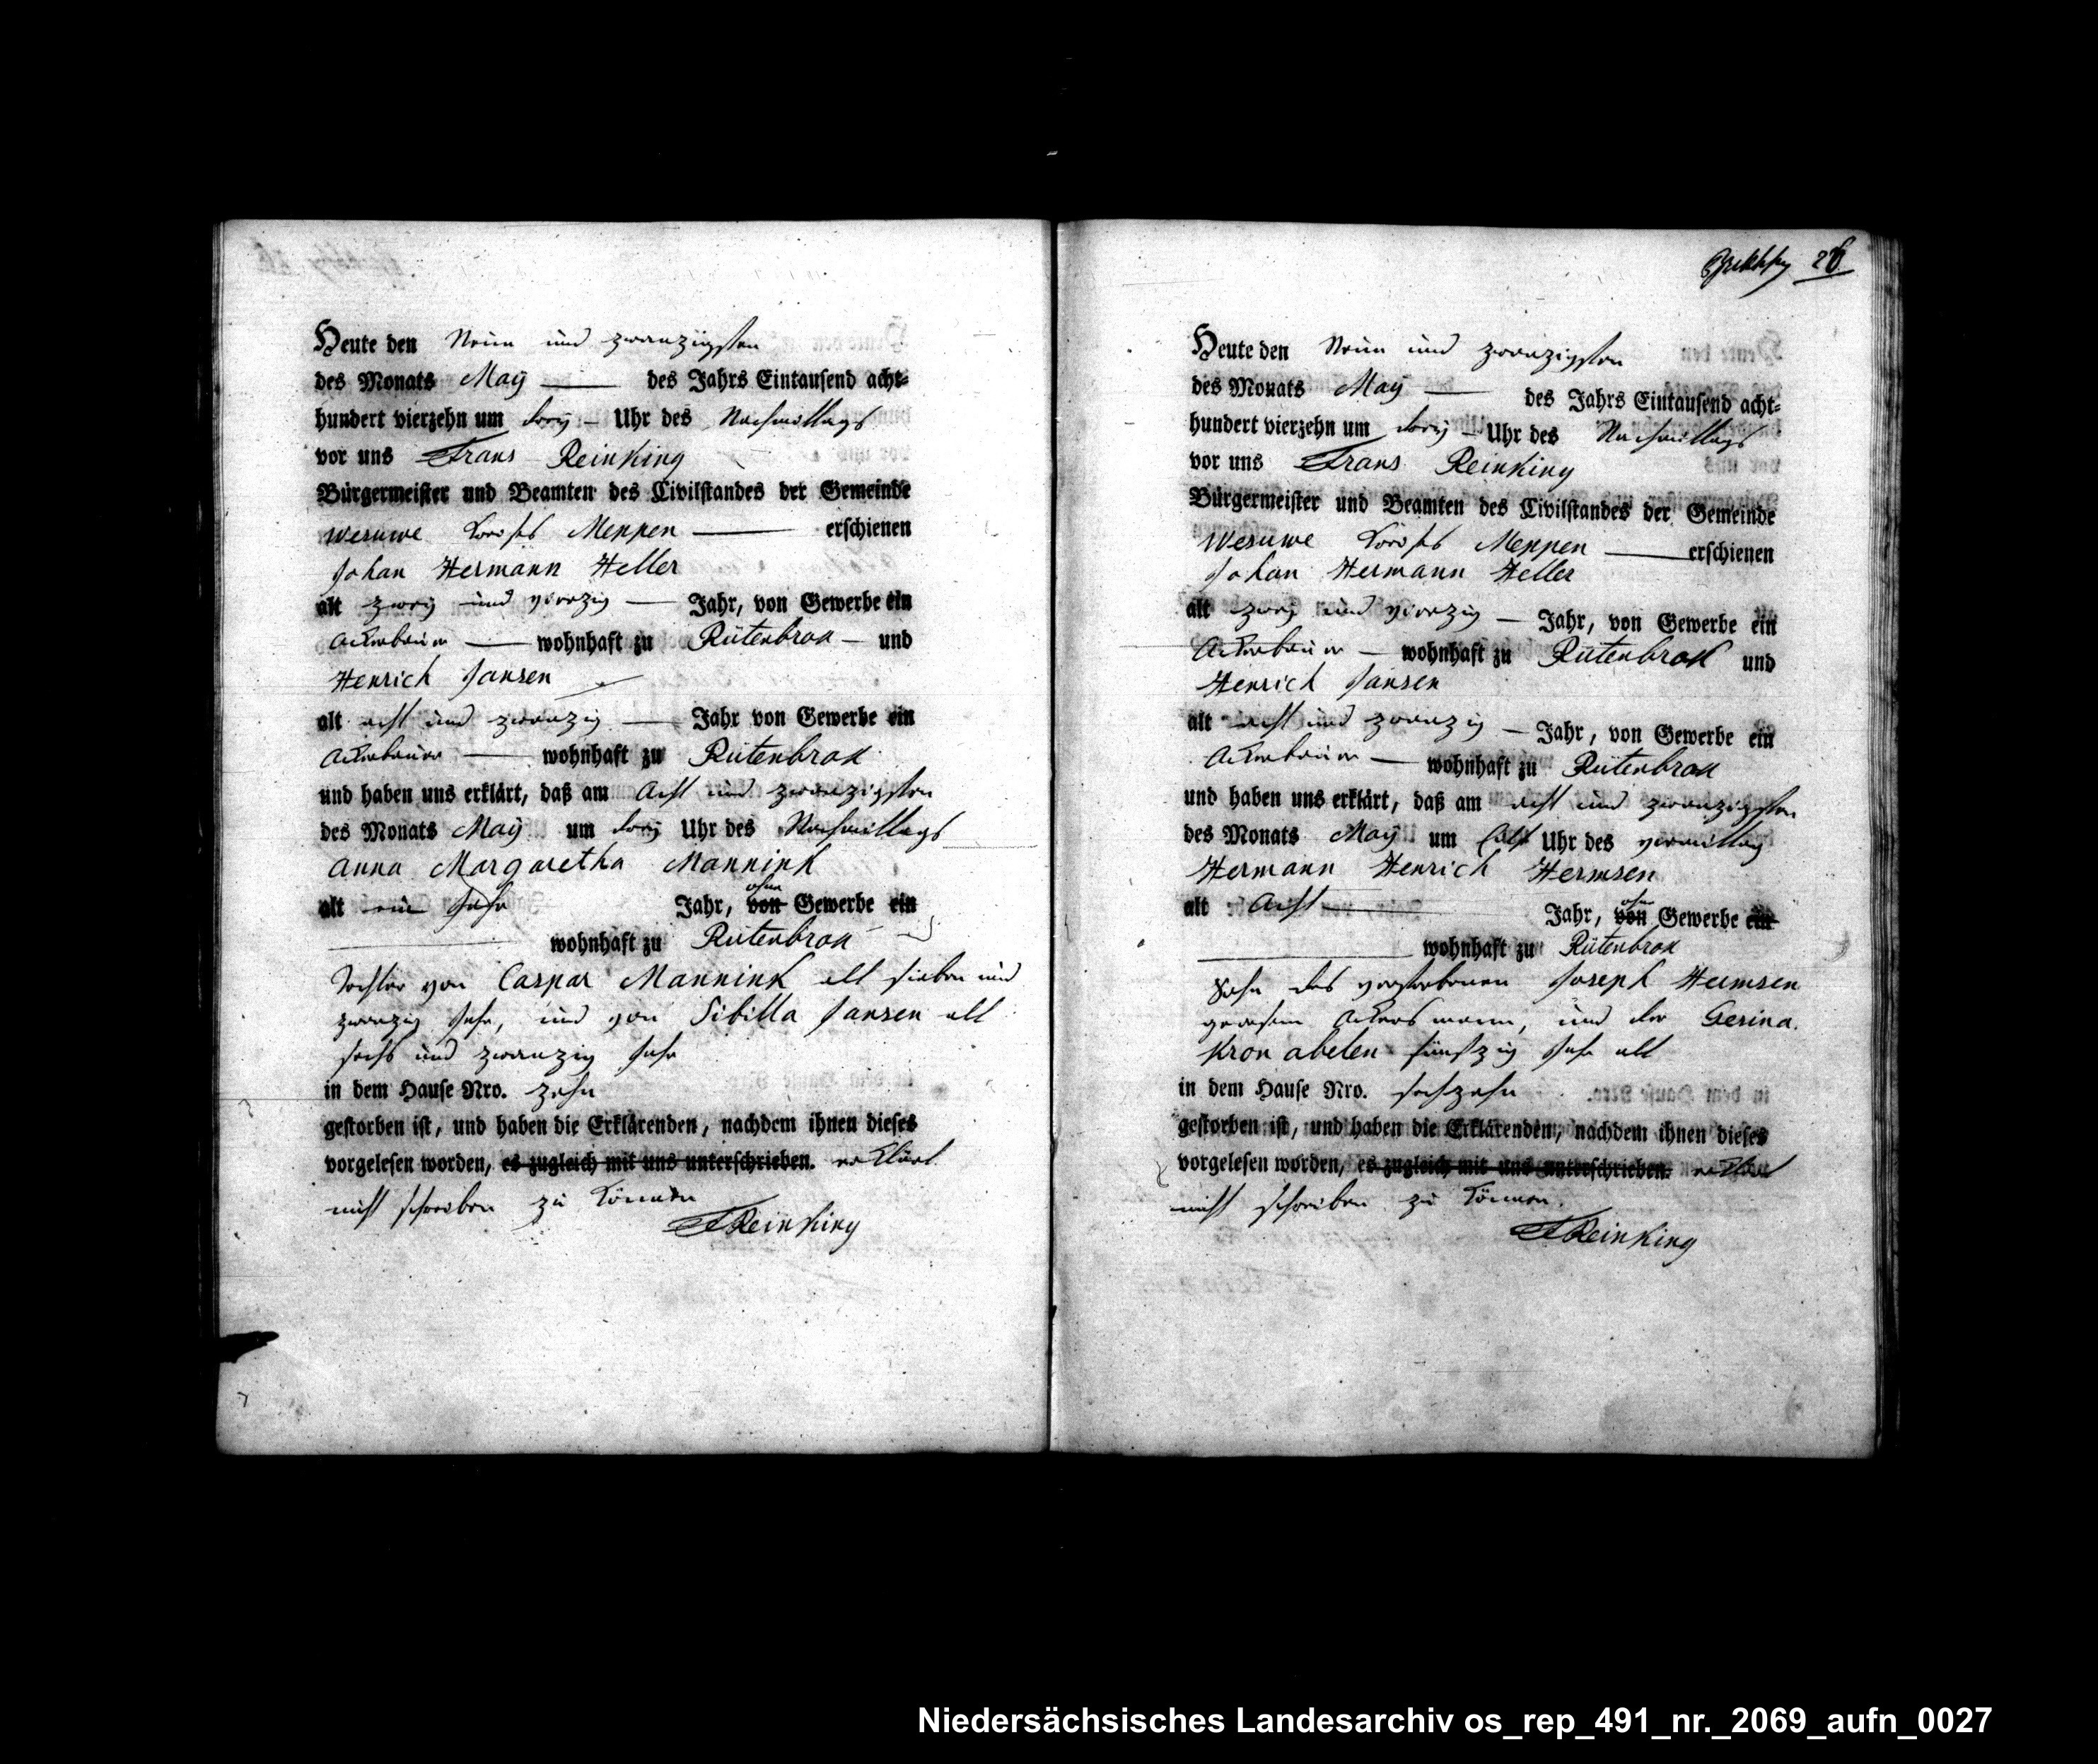 Heute den Neun und zwanzigsten
des Monats Maÿ des Jahrs Eintausend acht-
hundert vierzehn um dreÿ Uhr des Nachmittags
vor uns Frans Reinking
Bürgermeister und Beamten des Civilstandes der Gemeinde
Wesuwe Meppen erschienen
Johan Hermann Heller
alt zweÿ und vierzig Jahr, von Gewerbe ein
Ackerbauer wohnhaft zu Rütenbrok und
Henrich Jansen
alt acht und zwanzig Jahr von Gewerbe ein
Ackerbauer wohnhaft zu Rütenbrok
und haben uns erklärt, daß am Acht und zwanzigsten
des Monats Maÿ um dreÿ Uhr des Nachmittags
Anna Margaretha Mannink
alt ein Jahr Jahr, von ohne Gewerbe ein
wohnhaft zu Rütenbrok
Tochter von Caspar Mannink alt sieben und
zwanzig Jahr, und von Sibilla Jansen alt
sechs und zwanzig Jahr
in dem Hause Nro. zehn
gestorben ist, und haben die Erklärenden, nachdem ihnen dieses
vorgelesen worden, es zugleich mit uns unterschrieben. erklärt
nicht schreiben zu können
FReinking
26
Heute den Neun und zwanzigsten
des Monats Maÿ des Jahrs Eintausend acht-
hundert vierzehn um dreÿ Uhr des Nachmittags
vor uns Frans Reinking
Bürgermeister und Beamten des Civilstandes der Gemeinde
Wesuwe Meppen erschienen
Johan Hermann Heller
alt zweÿ und vierzig Jahr, von Gewerbe ein
Ackerbauer wohnhaft zu Rütenbrok und
Henrich Jansen
alt acht und zwanzig Jahr, von Gewerbe ein
Ackerbauer wohnhaft zu Rütenbrok
und haben uns erklärt, daß am acht und zwanzigsten
des Monats Maÿ um Elf Uhr des vormittag
Hermann Henrich Hermsen
alt Acht Jahr, von ohne Gewerbe ein
wohnhaft zu Rütenbrok
Sohn des verstorbenen Joseph Hermsen
gewesen Ackersmann, und der Gesina
Kron abelen fünfzig Jahr alt
in dem Hause Nro. sechzehn
gestorben ist, und haben die Erklärenden, nachdem ihnen dieses
vorgelesen worden, es zugleich mit uns unterschrieben. erklärt
nicht schreiben zu können.
FReinking
Niedersächsisches Landesarchiv os_rep_491_nr._2069_aufn_0027